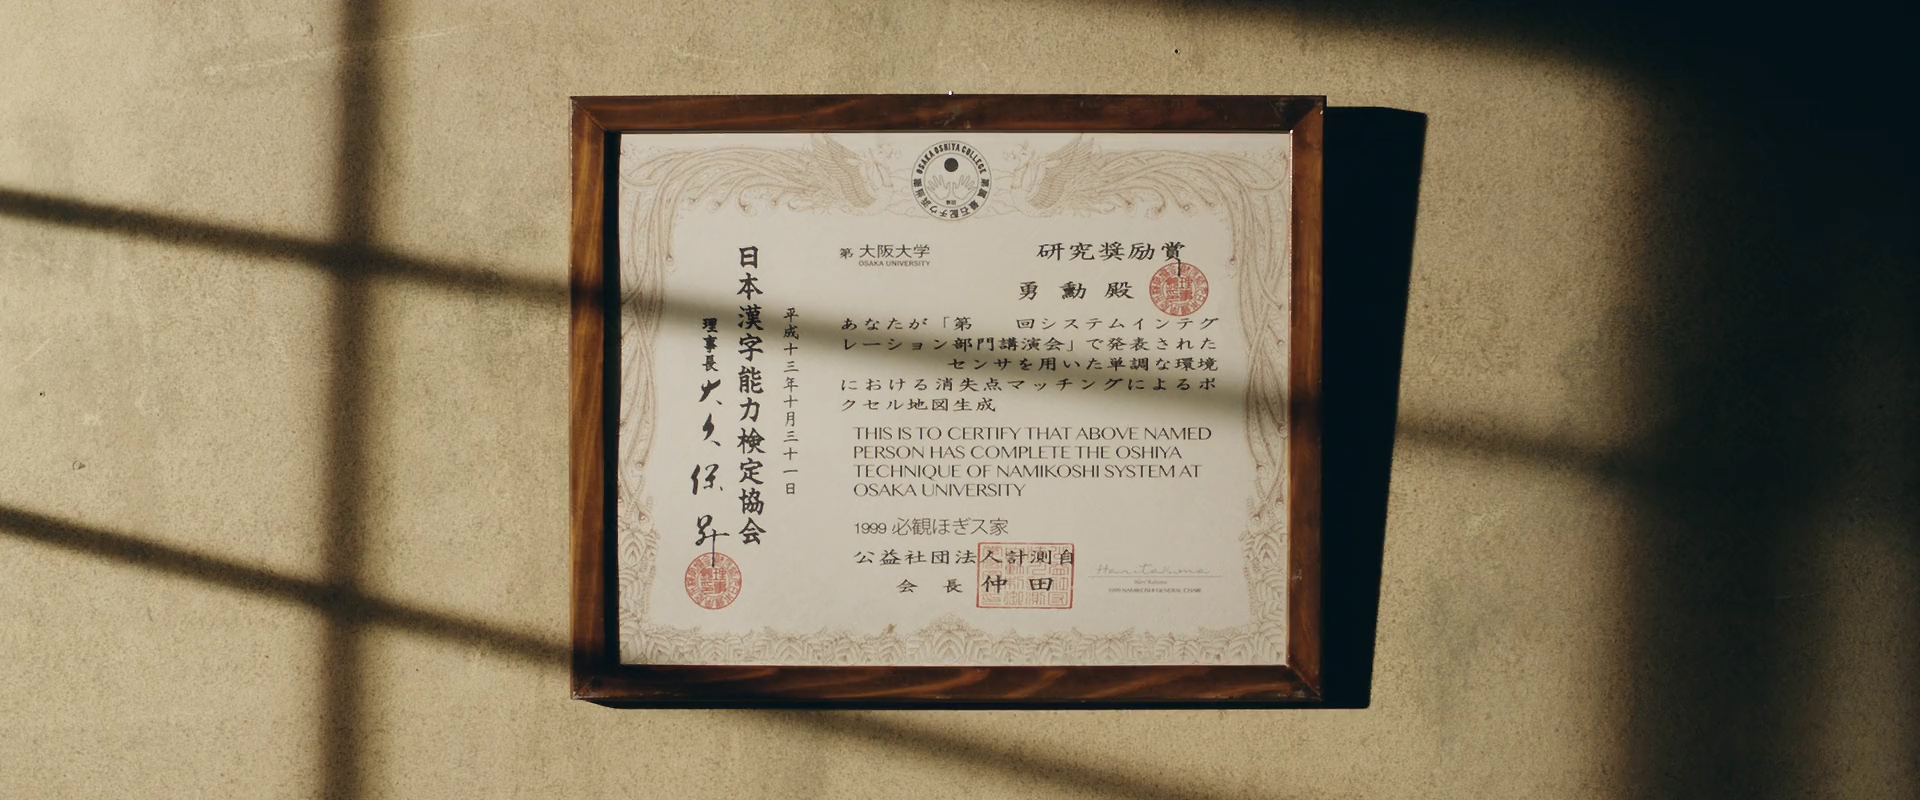 OSAKA OSHIYA COLLEGE
第 大阪大学
OSAKA UNIVERSITY
研究奨励賞
勇 勳 殿
あなたが「第 回システムインテグ
レーション部門講演会」で発表された
センサを用いた単調な環境
における消失点マッチングによるボ
クセル地図生成
THIS IS TO CERTIFY THAT ABOVE NAMED
PERSON HAS COMPLETE THE OSHIYA
TECHNIQUE OF NAMIKOSHI SYSTEM AT
OSAKA UNIVERSITY
1999 必観ほぎス家
公益社団法人計測自
会 長 仲 田
Hari Takuma
1999 NAMIKOSHI GENERAL CHAIR
平成十三年十月三十一日
日本漢字能力検定協会
理事長 大久保 昇